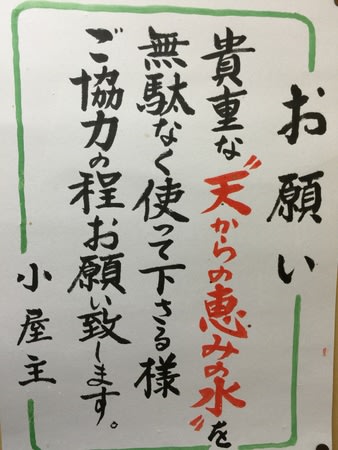 お願い
貴重な〝天からの恵みの水〟を
無駄なく使って下さる様
ご協力の程お願い致します。
小屋主